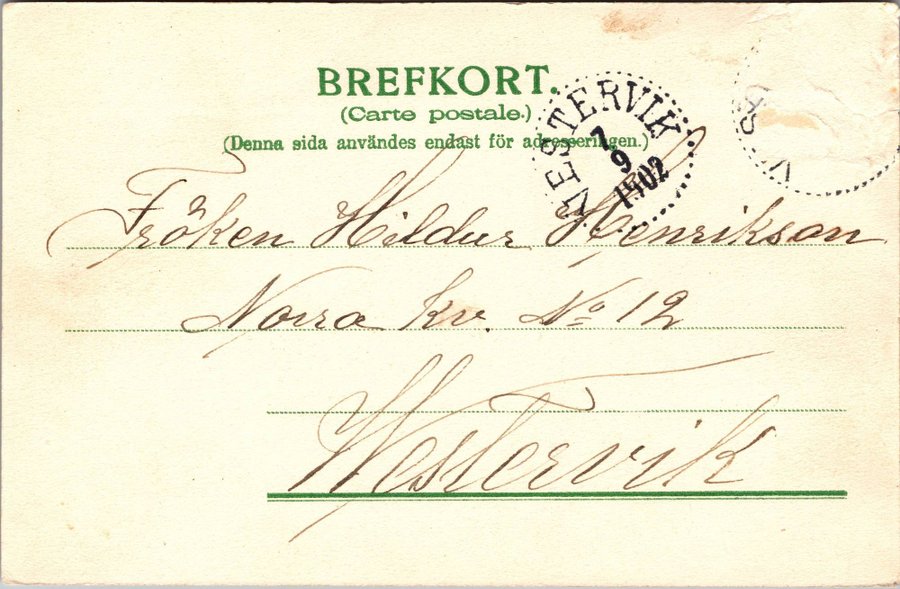 BREFKORT.
(Carte postale.)
(Denna sida användes endast för adresseringen.)
VESTERVIK
7 9
1902
Fröken Hildur Henrikson
Norra Kv. No 12
Westervik